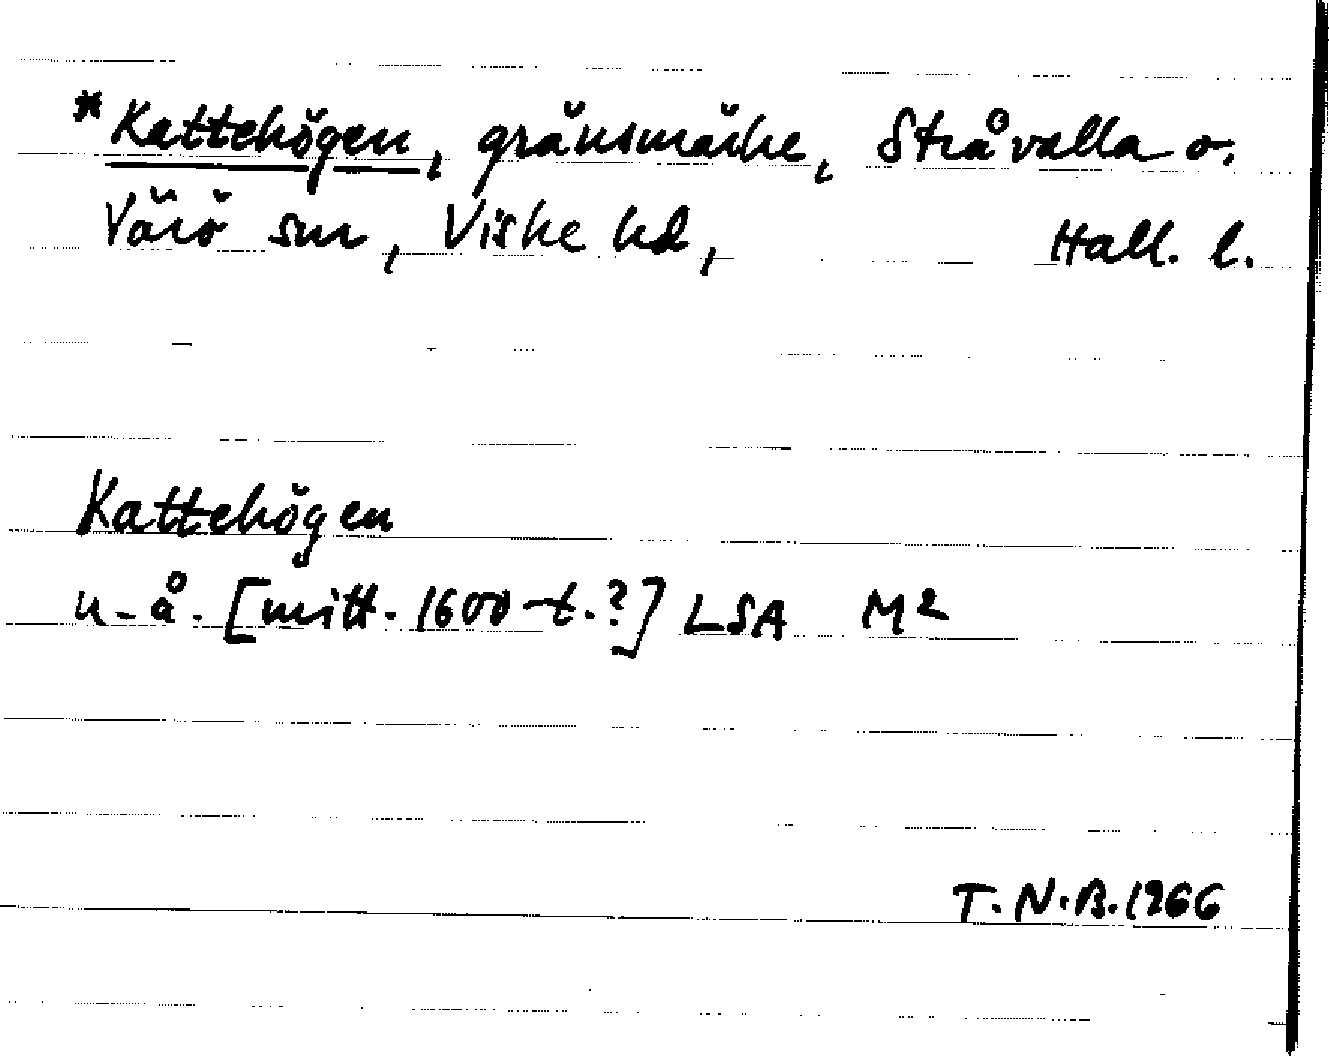 *Kattehögen, gränsmärke, Stråvalla o.
Värö snr, Viske hd, Hall. l.
Kattehögen
u. å. [mitt. 1600-t.?] LSA M²
T. N. B. 1966